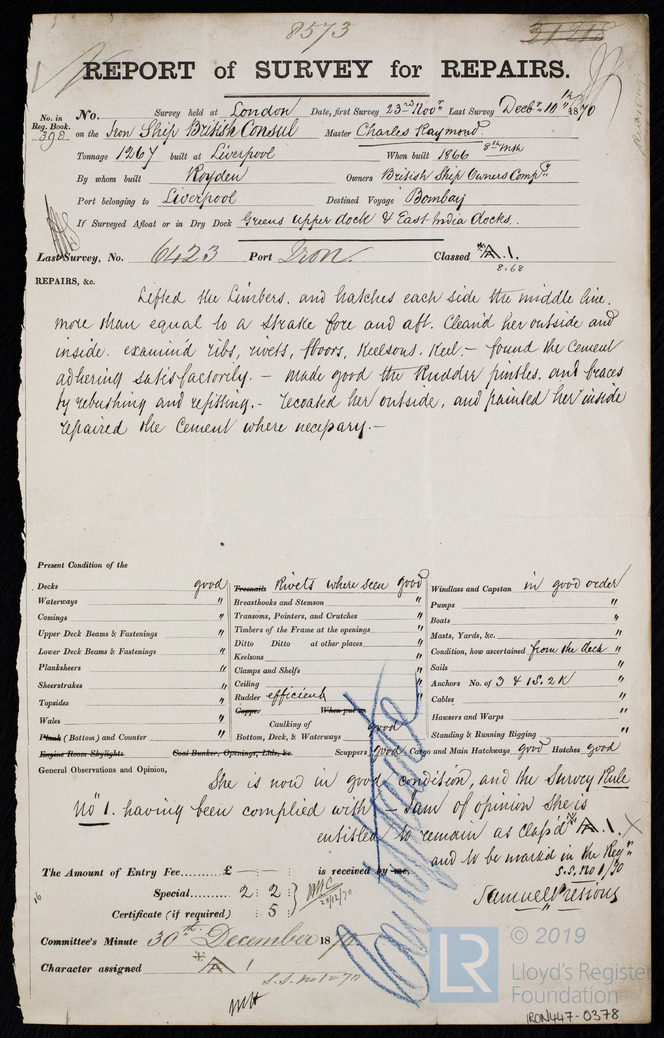 8573
REPORT of SURVEY for REPAIRS.
No. in Reg. Book. 398
No. Survey held at London Date, first Survey 23rd Novr Last Survey Decbr 10th 1870
on the Iron Ship British Consul Master Charles Raymond.
Tonnage 1267 built at Liverpool When built 1866 8th Mth
By whom built Royden Owners British Ship Owners Compy
Port belonging to Liverpool Destined Voyage Bombay
If Surveyed Afloat or in Dry Dock Greens upper dock & East India docks.
Last Survey, No. 6423 Port Iron. Classed A.1.
8.68
REPAIRS, &c.
Lifted the Limbers. and hatches each side the middle line.
more than equal to a strake fore and aft. Clean'd her outside and
inside. examin'd ribs, rivets, floors, Keelsons, Keel.- found the cement
adhering satisfactorily. - made good the Rudder pintles. and braces
by rebushing and refitting.- recoated her outside, and painted her inside
repaired the cement where necessary.-
Present Condition of the
Decks good
Waterways "
Comings "
Upper Deck Beams & Fastenings "
Lower Deck Beams & Fastenings "
Planksheers "
Sheerstrakes "
Topsides "
Wales "
Plank (Bottom) and Counter "
Engine Room Skylights Coal Bunker, Openings, Lids, &c.
Treenails Rivets where seen good
Breasthooks and Stemson "
Transoms, Pointers, and Crutches "
Timbers of the Frame at the openings "
Ditto Ditto at other places "
Keelsons "
Clamps and Shelfs "
Ceiling "
Rudder efficient
Copper When put on
Caulking of Bottom, Deck, & Waterways good
Scuppers good Cargo and Main Hatchways good Hatches good
Windlass and Capstan in good order
Pumps "
Boats "
Masts, Yards, &c. "
Condition, how ascertained from the deck
Sails "
Anchors No. of 3 & 1S. 2K "
Cables "
Hawsers and Warps "
Standing & Running Rigging "
General Observations and Opinion,
She is now in good condition, and the Survey Rule
No 1. having been complied with - I am of opinion she is
entitled to remain as class'd A.1. X
and to be mark'd in the Regr
S.S. No 1/70
The Amount of Entry Fee £ is received by me,
Special 2 : 2
Certificate (if required) : 5
29/12/70
16
Committee's Minute 30th December 1870
Character assigned A 1
S.S. No 1 = 70
© 2019
LR
Lloyd's Register
Foundation
IRON447-0378